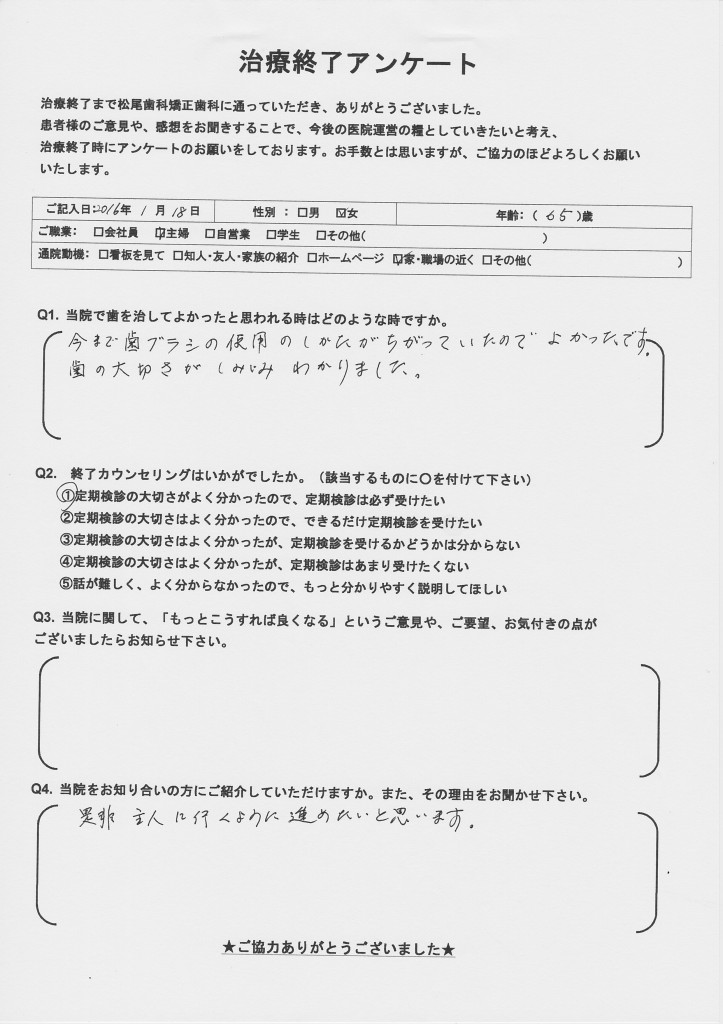 治療終了アンケート
治療終了まで松尾歯科矯正歯科に通っていただき、ありがとうございました。
患者様のご意見や、感想をお聞きすることで、今後の医院運営の糧としていきたいと考え、
治療終了時にアンケートのお願いをしております。お手数とは思いますが、ご協力のほどよろしくお願い
いたします。
ご記入日:2016年 1 月 18 日 性別 : □男 ☑女 年齢:( 65 )歳
ご職業: □会社員 ☑主婦 □自営業 □学生 □その他( )
通院動機: □看板を見て □知人・友人・家族の紹介 □ホームページ ☑家・職場の近く □その他( )
Q1. 当院で歯を治してよかったと思われる時はどのような時ですか。
今まで歯ブラシの使用のしかたがちがっていたのでよかったです。
歯の大切さがしみじみわかりました。
Q2. 終了カウンセリングはいかがでしたか。（該当するものに〇を付けて下さい）
①定期検診の大切さがよく分かったので、定期検診は必ず受けたい
②定期検診の大切さはよく分かったので、できるだけ定期検診を受けたい
③定期検診の大切さはよく分かったが、定期検診を受けるかどうかは分からない
④定期検診の大切さはよく分かったが、定期検診はあまり受けたくない
⑤話が難しく、よく分からなかったので、もっと分かりやすく説明してほしい
Q3. 当院に関して、「もっとこうすれば良くなる」というご意見や、ご要望、お気付きの点が
ございましたらお知らせ下さい。
Q4. 当院をお知り合いの方にご紹介していただけますか。また、その理由をお聞かせ下さい。
是非 主人に行くように進めたいと思います。
★ご協力ありがとうございました★